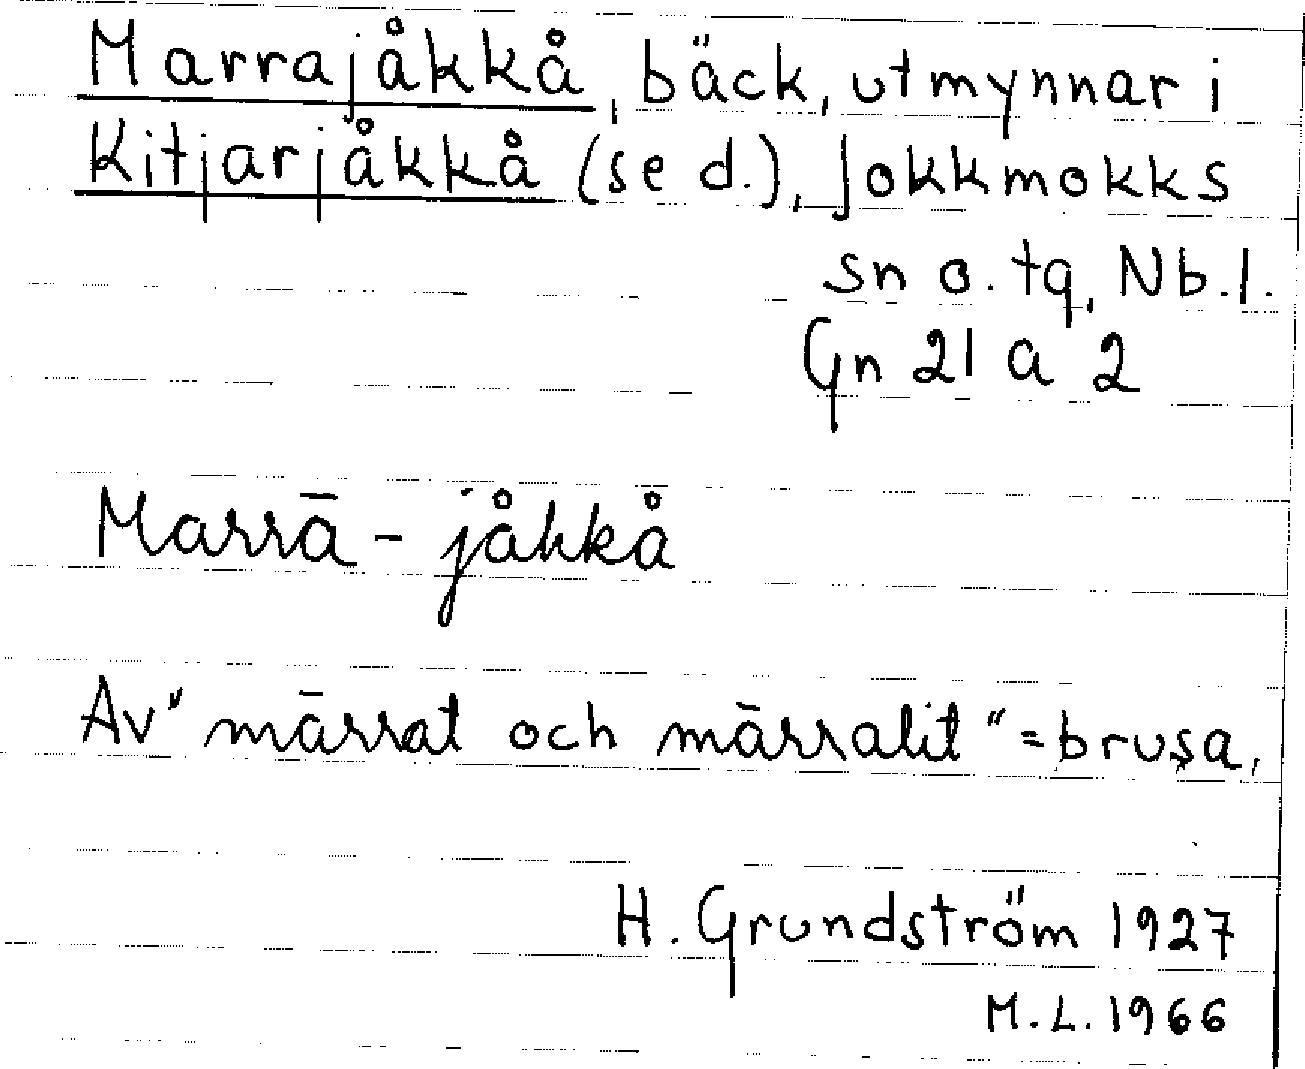 Marrajåkkå, bäck, utmynnar i
Kitjarjåkkå (se d.), Jokkmokks
sn o. tg, Nb.l.
Gn 21 a 2
Marrā - jåhkå
Av "mārrat och mārralit" = brusa,
H. Grundström 1927
M.L. 1966